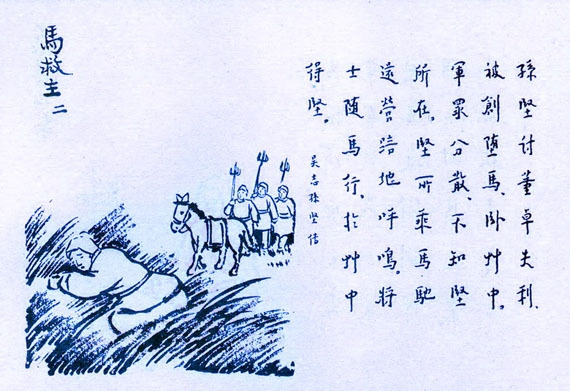 孫堅討董卓失利、
被創墮馬、臥艸中。
軍眾分散、不知堅
所在。堅所乘馬馳
還營踣地呼鳴。將
士随馬行、於艸中
得堅。 吳志孫堅傳
馬救主 二